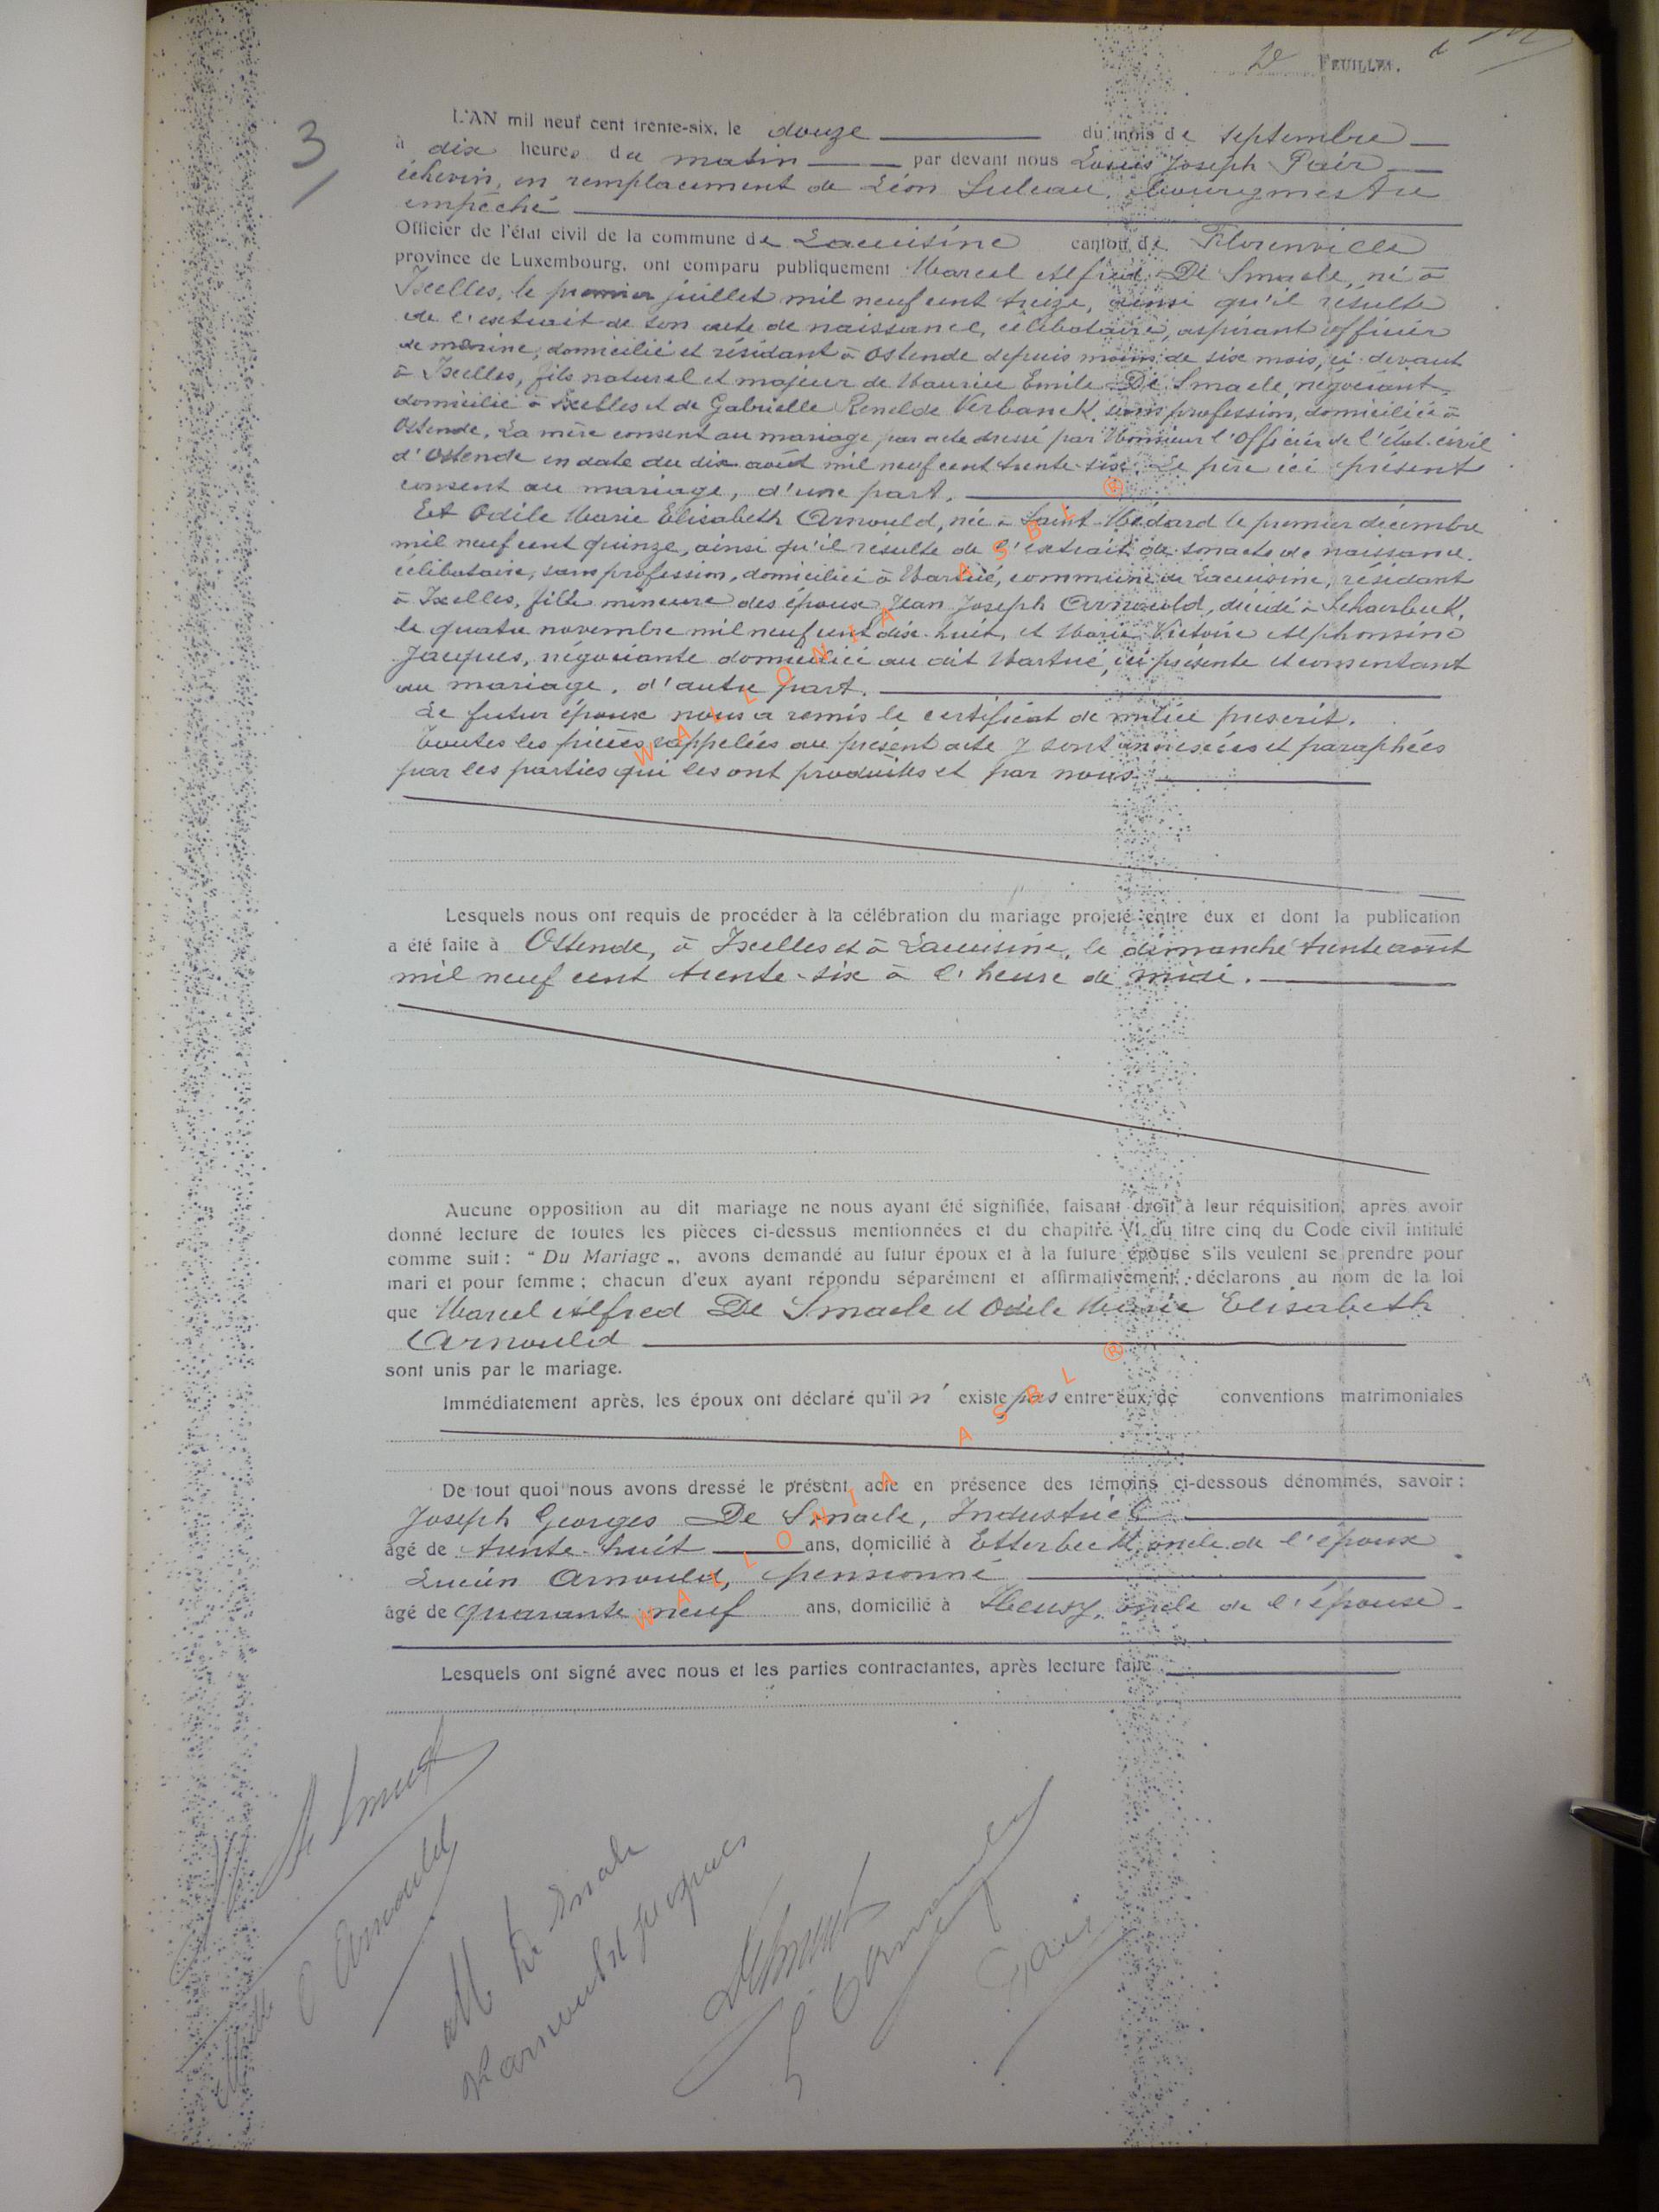 2e FEUILLET.
3
L'AN mil neuf cent trente-six, le douze du mois de septembre
à dix heures du matin par devant nous Louis Joseph Pair
échevin, en remplacement de Léon Suleau, bourgmestre
empêché
Officier de l'état civil de la commune de Lacuisine canton de Florenville
province de Luxembourg, ont comparu publiquement Marcel Alfred De Smaele, né à
Ixelles, le premier juillet mil neuf cent treize, ainsi qu'il résulte
de l'extrait de son acte de naissance, célibataire, aspirant officier
de marine, domicilié et résidant à Ostende depuis moins de six mois, ci-devant
à Ixelles, fils naturel et majeur de Maurice Emile De Smaele, négociant
domicilié à Ixelles et de Gabrielle Renelde Verbanck, sans profession, domiciliée à
Ostende. La mère consent au mariage par acte dressé par Monsieur l'Officier de l'état-civil
d'Ostende en date du dix août mil neuf cent trente-six. Le père ici présent
consent au mariage, d'une part.
Et Odile Marie Elisabeth Arnould, née à Saint-Médard le premier décembre
mil neuf cent quinze, ainsi qu'il résulte de l'extrait de son acte de naissance.
célibataire, sans profession, domiciliée à Martué, commune de Lacuisine, résidant
à Ixelles, fille mineure des époux Jean Joseph Arnould, décédé à Schaerbeek,
le quatre novembre mil neuf cent dix-huit, et Marie Victoire Alphonsine
Jacques, négociante domiciliée au dit Martué, ici présente et consentant
au mariage, d'autre part.
Le futur époux nous a remis le certificat de milice prescrit.
Toutes les pièces rappelées au présent acte y sont annexées et paraphées
par les parties qui les ont produites et par nous.
Lesquels nous ont requis de procéder à la célébration du mariage projeté entre eux et dont la publication
a été faite à Ostende, à Ixelles et à Lacuisine, le dimanche trente août
mil neuf cent trente-six à l'heure de midi.
Aucune opposition au dit mariage ne nous ayant été signifiée, faisant droit à leur réquisition, après avoir
donné lecture de toutes les pièces ci-dessus mentionnées et du chapitre VI du titre cinq du Code civil intitulé
comme suit : “ Du Mariage „, avons demandé au futur époux et à la future épouse s'ils veulent se prendre pour
mari et pour femme ; chacun d'eux ayant répondu séparément et affirmativement, déclarons au nom de la loi
que Marcel Alfred De Smaele et Odile Marie Elisabeth
Arnould
sont unis par le mariage.
Immédiatement après, les époux ont déclaré qu'il n'existe pas entre eux de conventions matrimoniales
De tout quoi nous avons dressé le présent acte en présence des témoins ci-dessous dénommés, savoir :
Joseph Georges De Smaele, Industriel
âgé de trente-huit ans, domicilié à Etterbeek, oncle de l'époux
Lucien Arnould, pensionné
âgé de quarante neuf ans, domicilié à Heusy, oncle de l'épouse.
Lesquels ont signé avec nous et les parties contractantes, après lecture faite
O Arnould
M De Smaele
Arnould Jacques
Pair
WALLONIA ASBL ®
WALLONIA ASBL ®